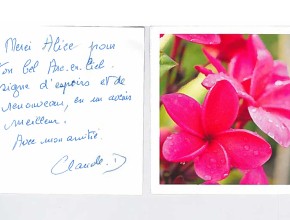 Merci Alice pour
ton bel Arc.en.Ciel.
signe d'espoirs et de
renouveau, en un
meilleur.
Avec mon amitié
Claude. D